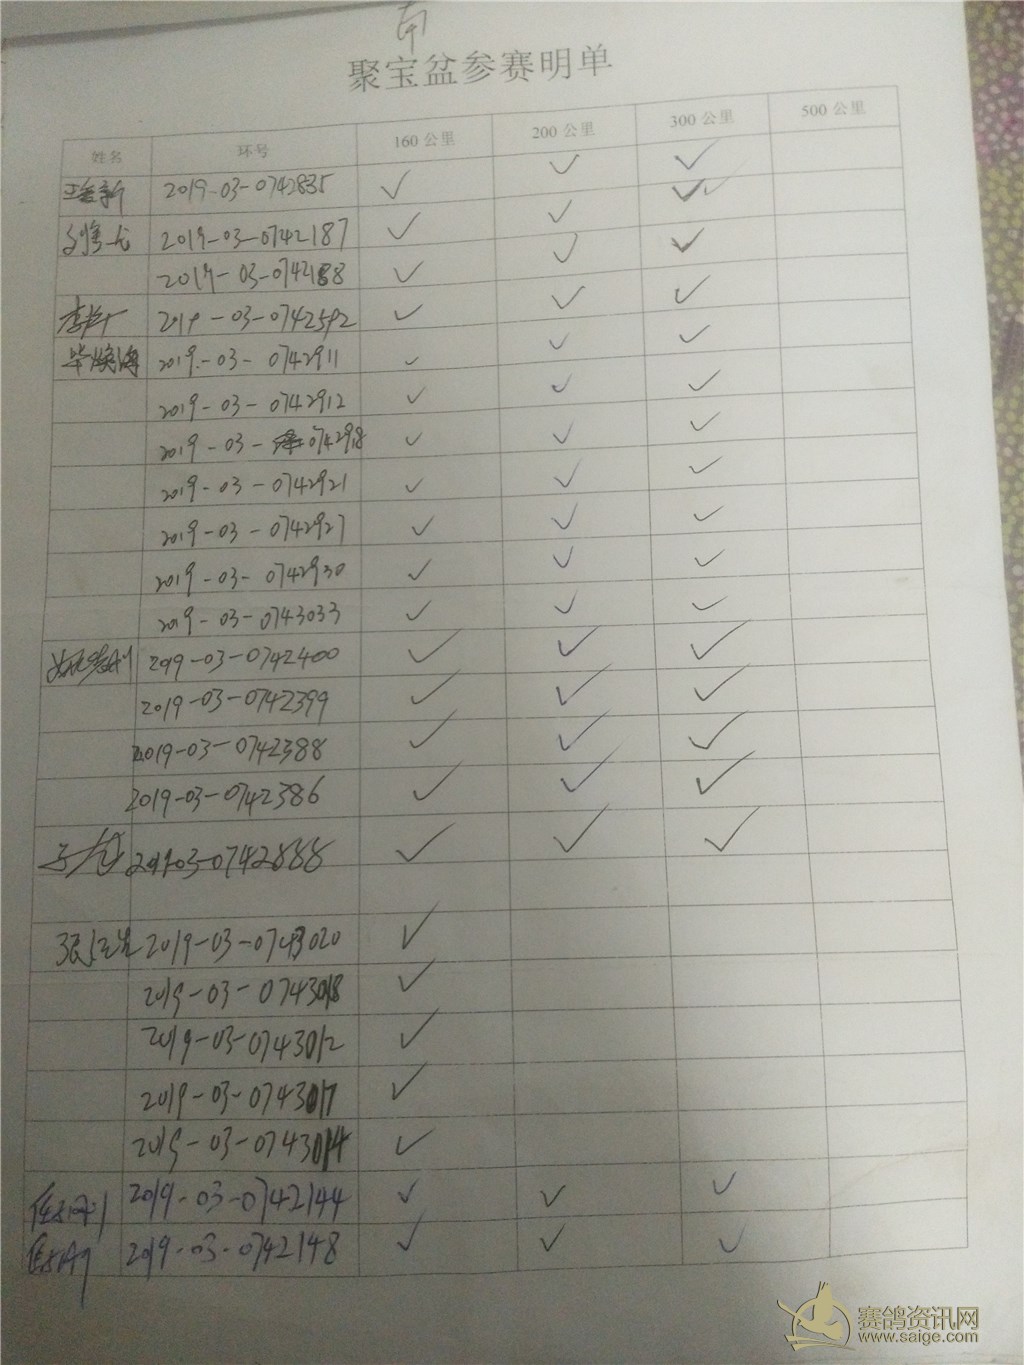 南
聚宝盆参赛明单
姓名 环号 160公里 200公里 300公里 500公里
2019-03-0742835 ✓ ✓ ✓
2019-03-0742187 ✓ ✓ ✓✓
2019-03-0742188 ✓ ✓ ✓
2019-03-0742592 ✓ ✓ ✓
毕焕海 2019-03-0742911 ✓ ✓ ✓
2019-03-0742912 ✓ ✓ ✓
2019-03-0742918 ✓ ✓ ✓
2019-03-0742921 ✓ ✓ ✓
2019-03-0742927 ✓ ✓ ✓
2019-03-0742930 ✓ ✓ ✓
2019-03-0743033 ✓ ✓ ✓
2019-03-0742400 ✓ ✓ ✓
2019-03-0742399 ✓ ✓ ✓
2019-03-0742388 ✓ ✓ ✓
2019-03-0742386 ✓ ✓ ✓
2019-03-0742888 ✓ ✓ ✓
2019-03-0743020 ✓
2019-03-0743018 ✓
2019-03-0743012 ✓
2019-03-0743017 ✓
2019-03-0743014 ✓
2019-03-0742144 ✓ ✓ ✓
2019-03-0742148 ✓ ✓ ✓
赛鸽资讯网
www.saige.com